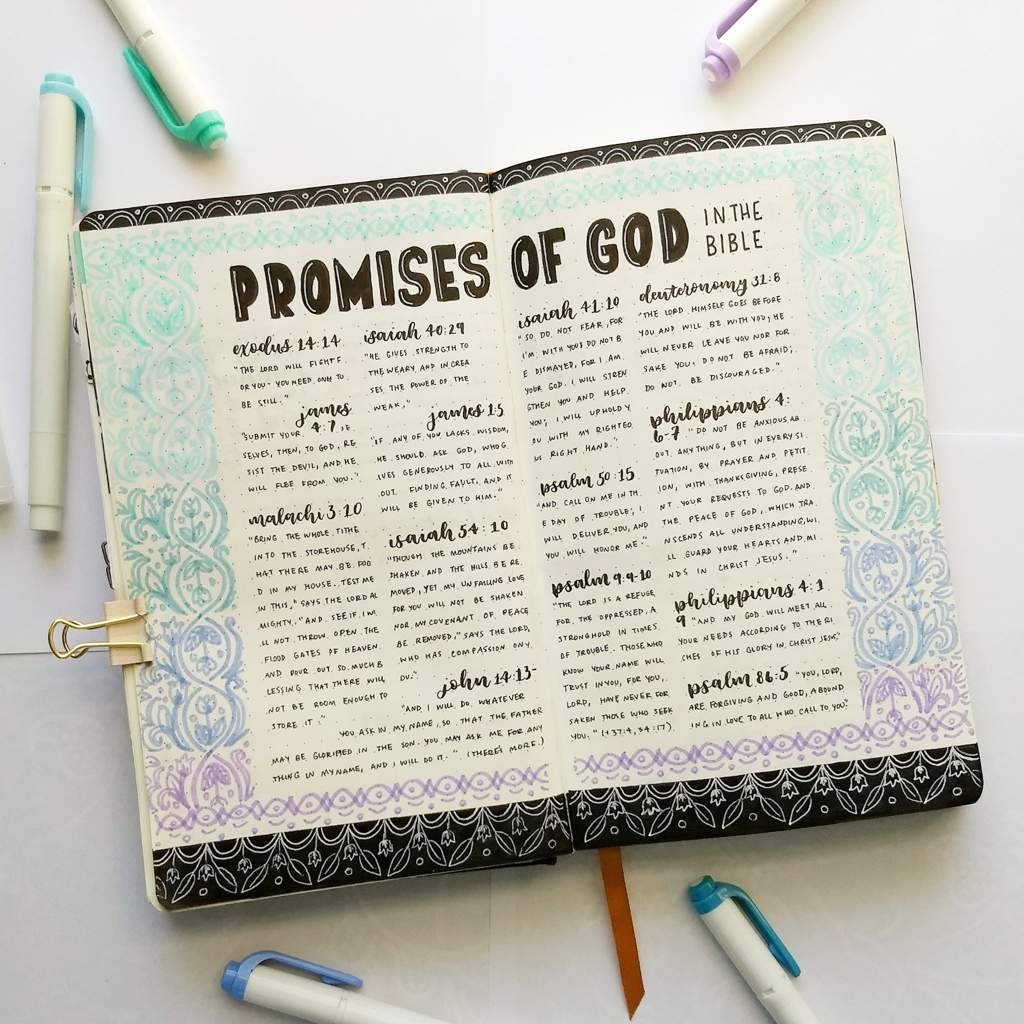 PROMISES OF GOD IN THE
BIBLE
exodus 14:14
"THE LORD WILL FIGHT F
OR YOU. YOU NEED ONLY TO
BE STILL."
isaiah 40:29
"HE GIVES STRENGTH TO
THE WEARY AND INCREA
SES THE POWER OF THE
WEAK."
james
4:7
"SUBMIT YOUR
SELVES, THEN, TO GOD, RE
SIST THE DEVIL, AND HE
WILL FLEE FROM YOU."
james 1:5
"IF ANY OF YOU LACKS WISDOM,
HE SHOULD ASK GOD, WHO G
IVES GENEROUSLY TO ALL WITH
OUT FINDING FAULT, AND IT
WILL BE GIVEN TO HIM."
malachi 3:10
"BRING THE WHOLE TITHE
INTO THE STOREHOUSE, T
HAT THERE MAY BE FOO
D IN MY HOUSE. TEST ME
IN THIS," SAYS THE LORD AL
MIGHTY, "AND SEE IF I WI
LL NOT THROW OPEN THE
FLOOD GATES OF HEAVEN
AND POUR OUT SO MUCH B
LESSING THAT THERE WILL
NOT BE ROOM ENOUGH TO
STORE IT."
isaiah 54:10
"THOUGH THE MOUNTAINS BE
SHAKEN AND THE HILLS BE RE
MOVED, YET MY UNFAILING LOVE
FOR YOU WILL NOT BE SHAKEN
NOR MY COVENANT OF PEACE
BE REMOVED," SAYS THE LORD,
WHO HAS COMPASSION ON Y
OU."
john 14:13-
"AND I WILL DO WHATEVER
YOU ASK IN MY NAME, SO THAT THE FATHER
MAY BE GLORIFIED IN THE SON. YOU MAY ASK ME FOR ANY
THING IN MY NAME, AND I WILL DO IT." (THERE'S MORE.)
isaiah 41:10
"SO DO NOT FEAR, FOR
I'M WITH YOU; DO NOT B
E DISMAYED, FOR I AM
YOUR GOD. I WILL STREN
GTHEN YOU AND HELP
YOU; I WILL UPHOLD Y
OU WITH MY RIGHTEO
US RIGHT HAND."
psalm 50:15
"AND CALL ON ME IN TH
E DAY OF TROUBLE; I
WILL DELIVER YOU, AND
YOU WILL HONOR ME."
psalm 9:9-10
"THE LORD IS A REFUGE
FOR THE OPPRESSED, A
STRONGHOLD IN TIMES
OF TROUBLE. THOSE WHO
KNOW YOUR NAME WILL
TRUST IN YOU, FOR YOU,
LORD, HAVE NEVER FOR
SAKEN THOSE WHO SEEK
YOU." (+37:4, 34:17)
deuteronomy 31:8
"THE LORD HIMSELF GOES BEFORE
YOU AND WILL BE WITH YOU; HE
WILL NEVER LEAVE YOU NOR FOR
SAKE YOU. DO NOT BE AFRAID;
DO NOT BE DISCOURAGED."
philippians 4:
6-7 "DO NOT BE ANXIOUS AB
OUT ANYTHING, BUT IN EVERY SI
TUATION, BY PRAYER AND PETIT
ION, WITH THANKSGIVING, PRESE
NT YOUR REQUESTS TO GOD. AND
THE PEACE OF GOD, WHICH TRA
NSCENDS ALL UNDERSTANDING, WI
LL GUARD YOUR HEARTS AND MI
NDS IN CHRIST JESUS."
philippians 4:1
9 "AND MY GOD WILL MEET ALL
YOUR NEEDS ACCORDING TO THE RI
CHES OF HIS GLORY IN CHRIST JESUS."
psalm 86:5 "YOU, LORD,
ARE FORGIVING AND GOOD, ABOUND
ING IN LOVE TO ALL WHO CALL TO YOU."